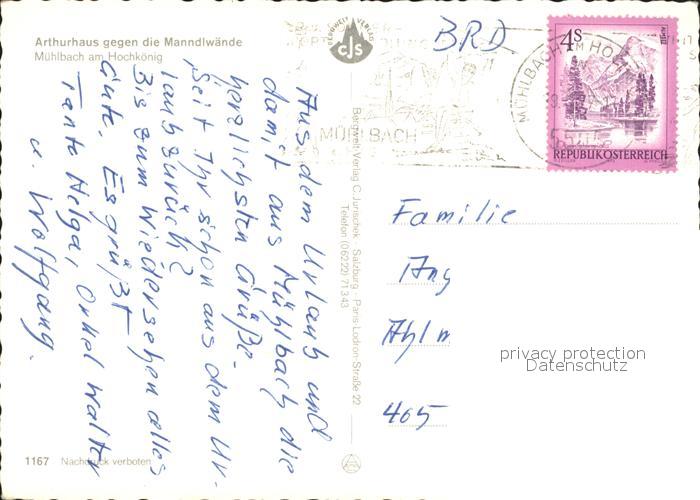 Arthurhaus gegen die Manndlwände
Mühlbach am Hochkönig
BERGWELT VERLAG
CJS
BRD
4S
MÜHLBACH AM HO
MÜHLBACH
REPUBLIK ÖSTERREICH
Aus dem Urlaub und
damit aus Mühlbach die
herzlichsten Grüße.
Seit Ihr schon aus dem Ur-
laub zurück?
Bis zum Wiedersehen alles
Gute. Es grüßt
Tante Helga, Onkel Walter
u. Wolfgang.
Bergwelt Verlag C. Jurischek · Salzburg · Paris-Lodron-Straße 22
Telefon (06222) 71343
Familie
Ang
Ahlm
465
privacy protection
Datenschutz
1167 Nachdruck verboten